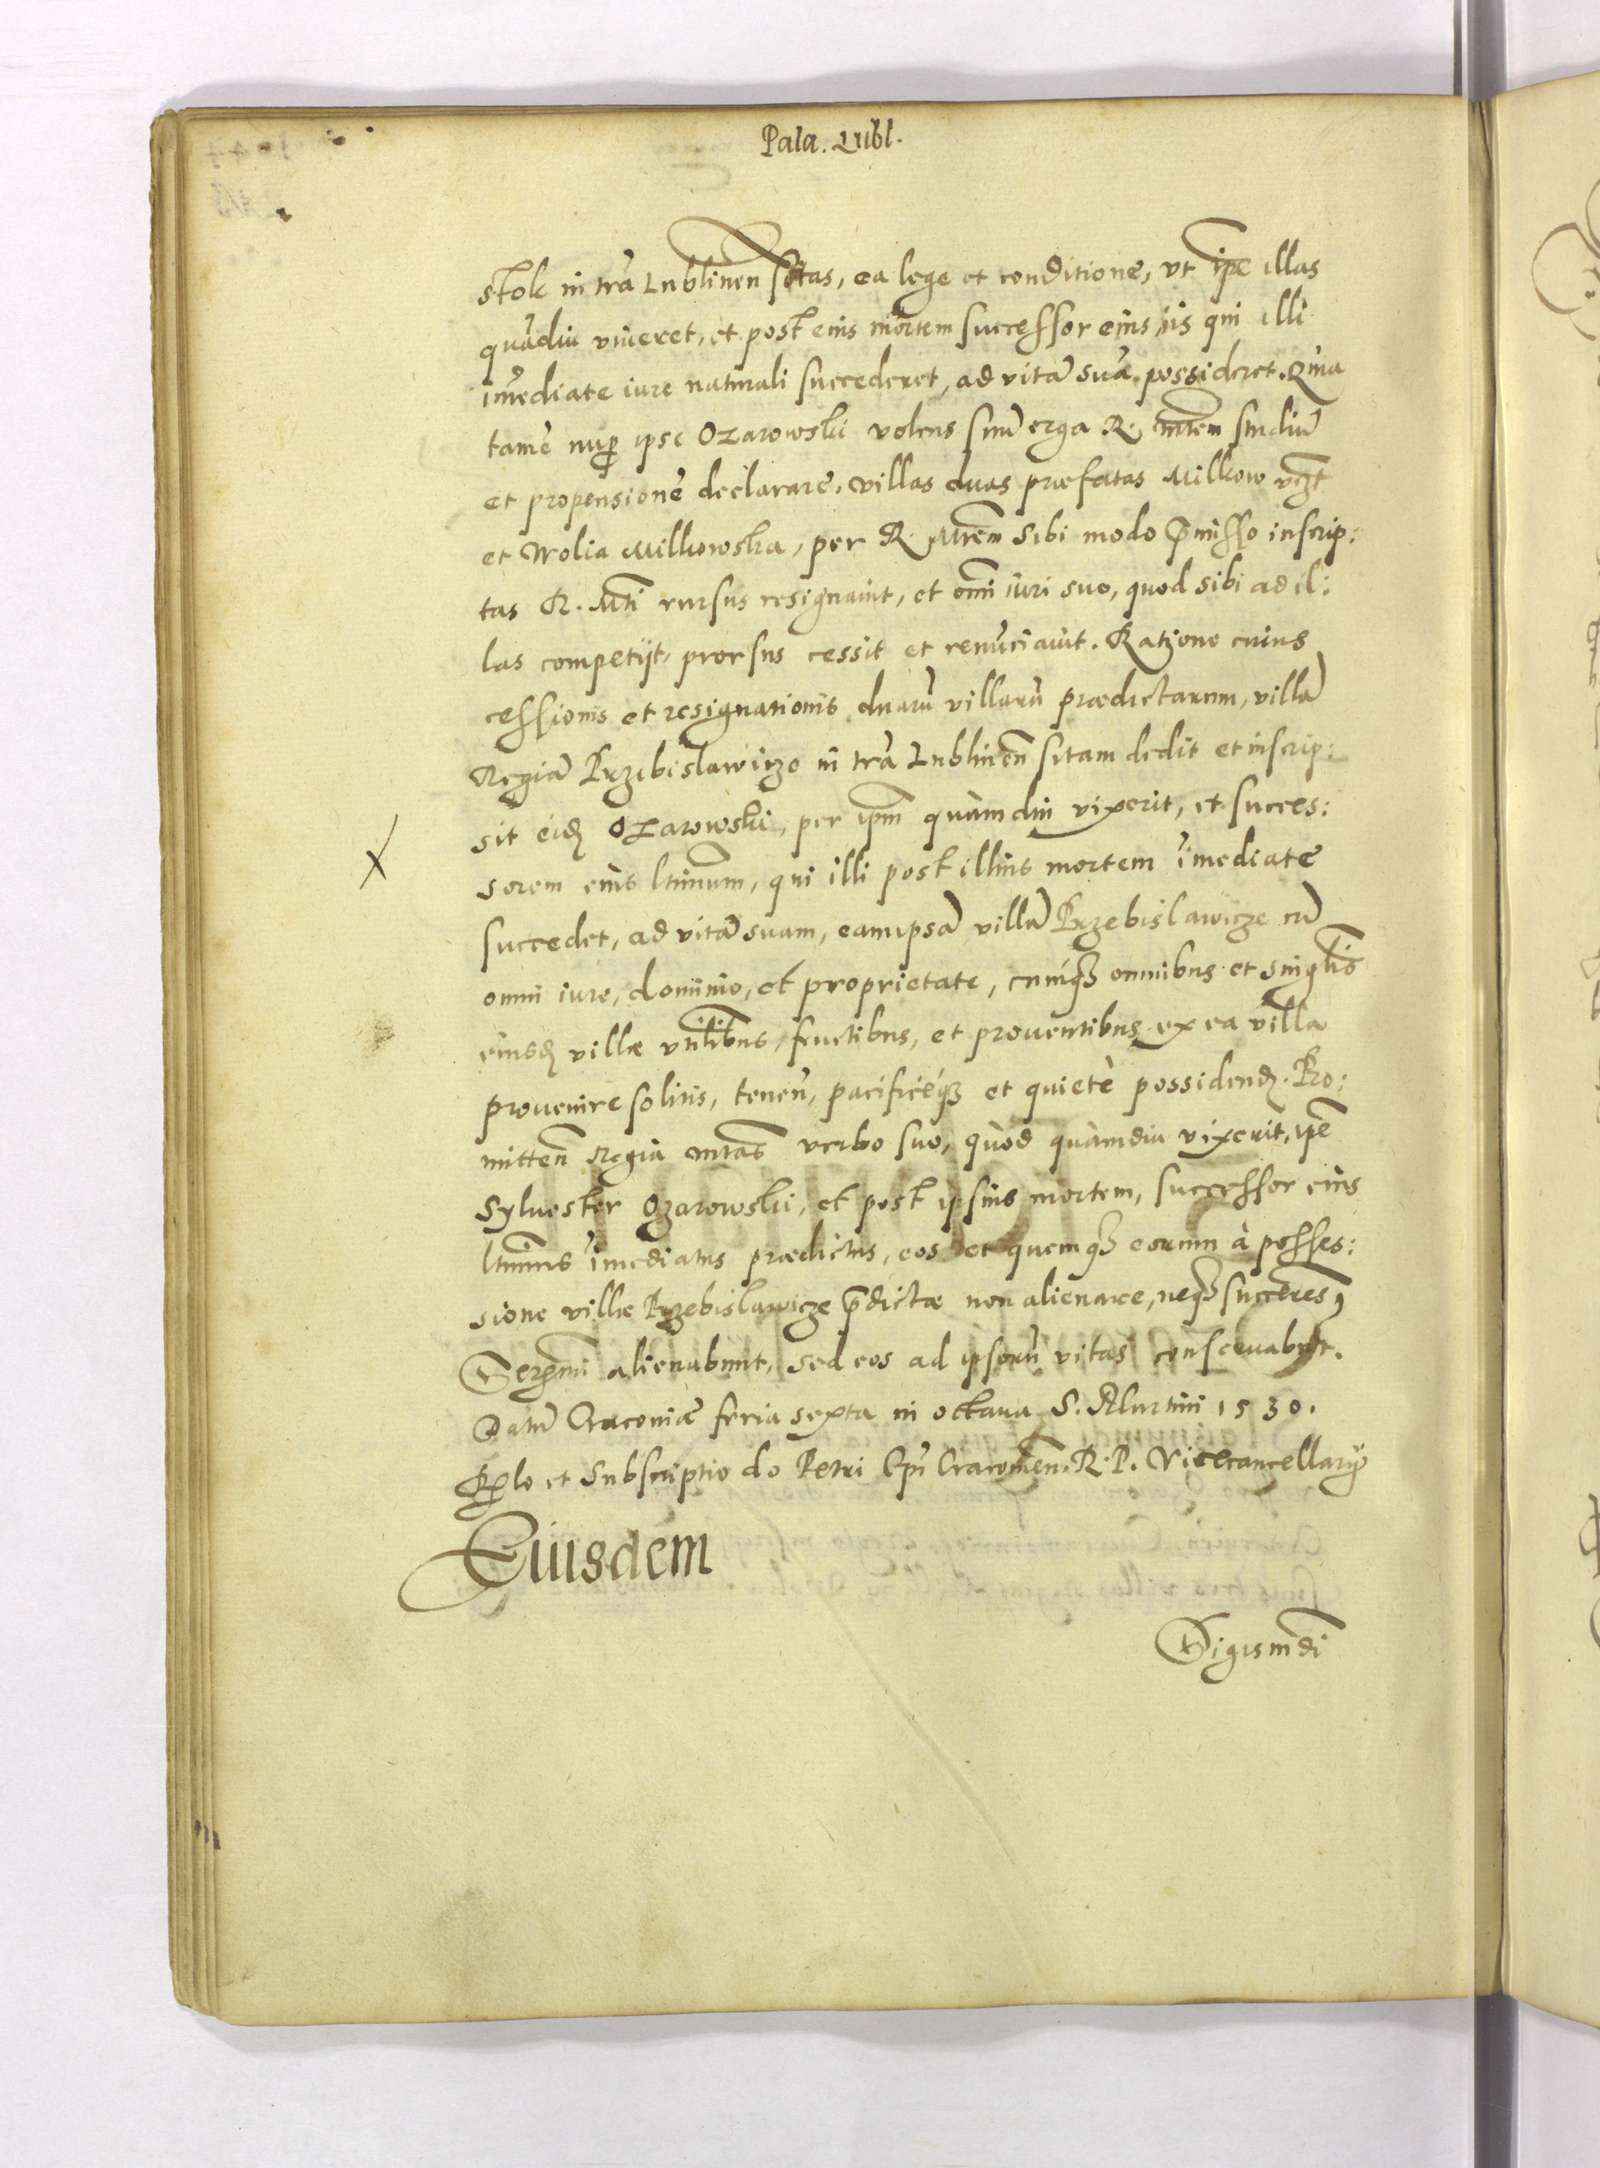 Pala. Lubl.
stok in tra Lublinen sitas, ea lege et conditione, vt ipe illas
quadiu viueret, et post eius mortem successor eius, iis qui illi
imediate iure naturali succederet, ad vita sua possideret. Quia
tame nup ipse Ozarowski volens suu erga R. mtem studiu
et propensione declarare, villas duas præfatas Milkow vczt
et Wolia Milkowska, per R. Mtem sibi modo pmisso inscrip:
tas R. Mti rursus resignauit, et omi iuri suo, quod sibi ad il:
las competijt, prorsus cessit et renuciauit. Ratione cuius
cessionis et resignationis duaru villaru prædictarum, villa
Regia Przibislawicze in tra Lublinen sitam dedit et inscrip:
sit eid Ozarowski, per ipm quàm diu vixerit, et succes:
sorem eius ltimum, qui illi post illius mortem imediate
succedet, ad vita suam, eam ipsa villa Przebislawicze cu
omni iure, dominio, et proprietate, cumq omnibus et singlis
eiusd villæ vtilibus, fructibus, et prouentibus ex ea villa
prouenire solitis, tenen, pacificéq et quietè possidend. Pro:
mitten Regia mtas verbo suo, quòd quàmdiu vixerit, ipe
Syluester Ozarowski, et post ipsius mortem, successor eius
ltimus imediatus prædictus, eos et quemq eorum à posses:
sione villæ Przebislawicze pdictæ non alienare, neq succeres
Serenmi alienabunt, sed eos ad ipsoru vitas conseruabunt.
Datu Cracouiæ feria sexta in octaua S. Martini 1530.
Rlo et Subscriptio do Petri Epi Cracouien. R. P. Vicecancellarij
Eiusdem
Sigismdi